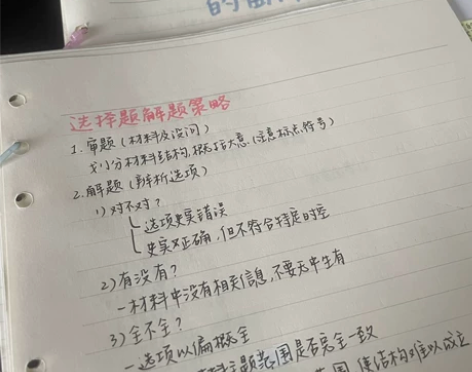 的
选择题解题策略
1. 审题（材料及设问）
划分材料结构，概括大意（注意标点，符号）
2. 解题（辨析选项）
1）对不对？
选项史实错误
史实正确，但不符合特定时空
2）有没有？
—材料中没有相关信息，不要无中生有
3）全不全？
—选项以偏概全
主题范围是否完全一致
围，使结构难以成立